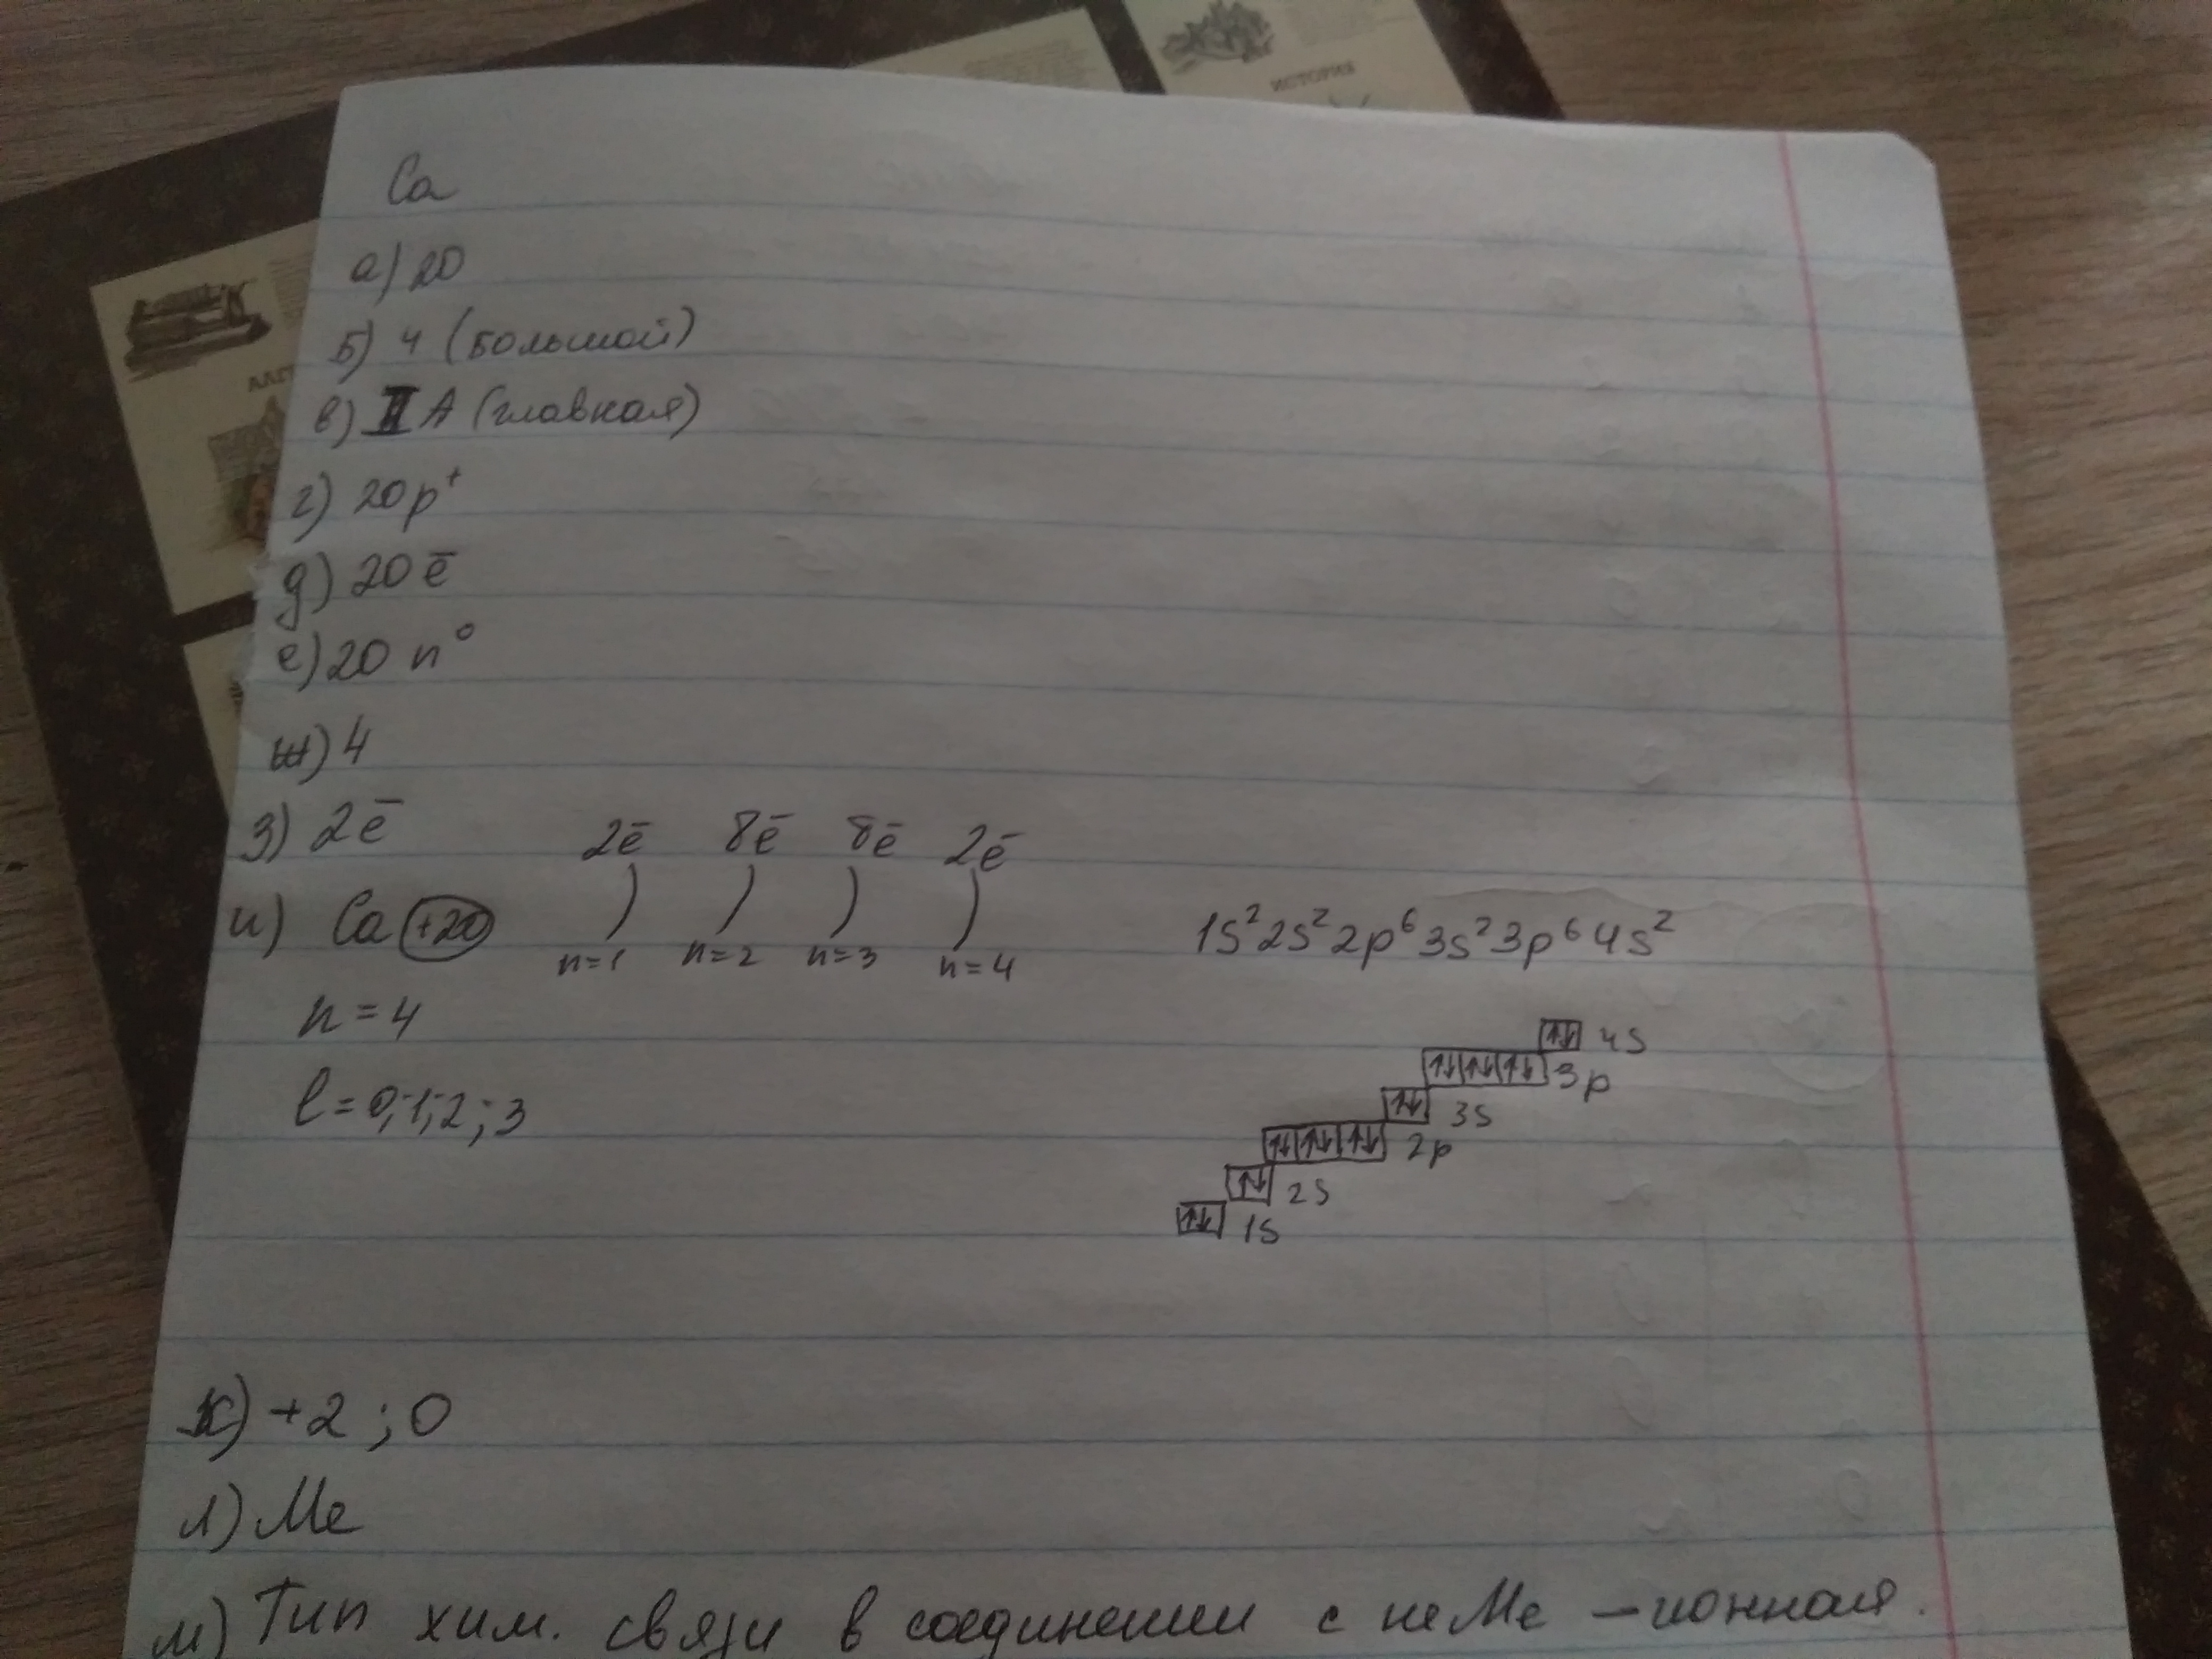 ИСТОРИЯ
Ca
а) 20
Б) 4 (большой)
в) II A (главная)
г) 20p⁺
д) 20ē
е) 20 n⁰
ж) 4
з) 2ē
2ē 8ē 8ē 2ē
и) Ca +20 ) ) ) )
n=1 n=2 n=3 n=4
1s²2s²2p⁶3s²3p⁶4s²
n=4
l=0;1;2;3
↑↓ 4s
↑↓ ↑↓ ↑↓ 3p
↑↓ 3s
↑↓ ↑↓ ↑↓ 2p
↑↓ 2s
↑↓ 1s
к) +2 ; 0
л) Ме
м) Тип хим. связи в соединении с неМе – ионная.